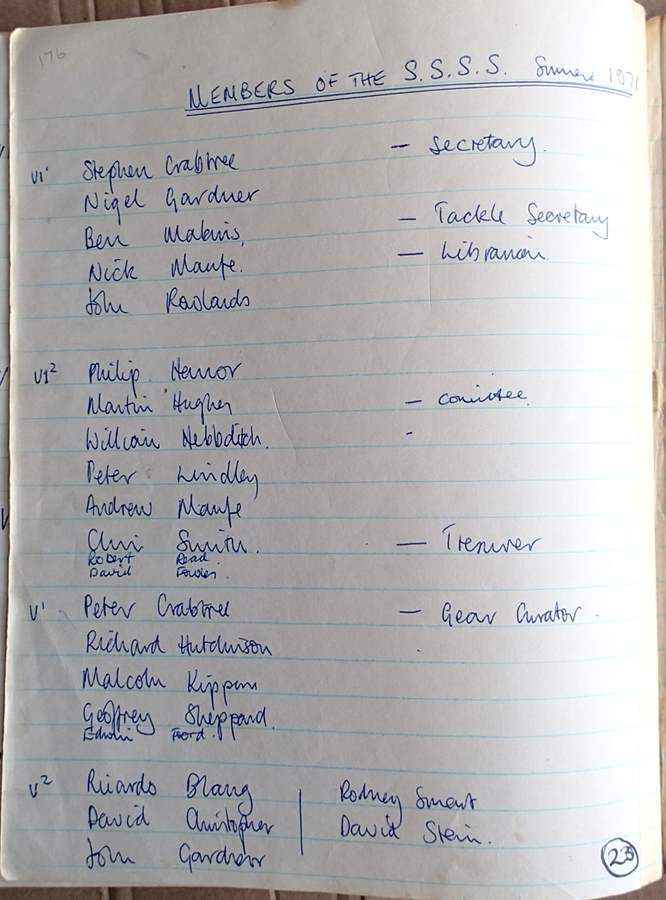 176
MEMBERS OF THE S.S.S.S. Summer 197
VI¹ Stephen Crabtree – Secretary.
Nigel Gardner
Ben – Tackle Secretary
Nick Maufe. – Librarian.
John Rowlands
VI² Philip
Martin Hughes – Comittee.
William -
Peter Lindley
Andrew Maufe
Chris Smith. – Tresurer
Robert Read.
David Fowler.
V¹ Peter Crabtree – Gear Curator.
Richard Hutchinson
Malcolm
Geoffrey Sheppard.
Edwin Ford.
V² Ricardo | Rodney Smart
David Christopher | David Stein.
John Gardner
23